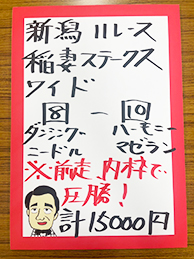 新潟11レース
稲妻ステークス
ワイド
8 - 10
ダンシング ハーモニー
ニードル マゼラン
※前走内枠で、
圧勝!
計15000円